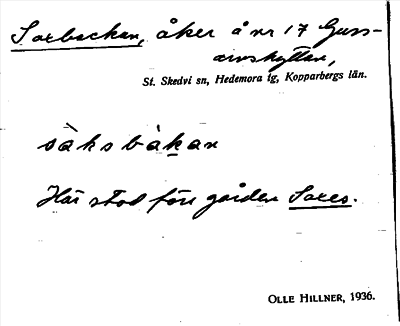 Saxbackan, åker å nr 17 Guss-
arvshyttan,
St. Skedvi sn, Hedemora tg, Kopparbergs län.
sàksbàkan
Här stod förr gården Saxes.
OLLE HILLNER, 1936.